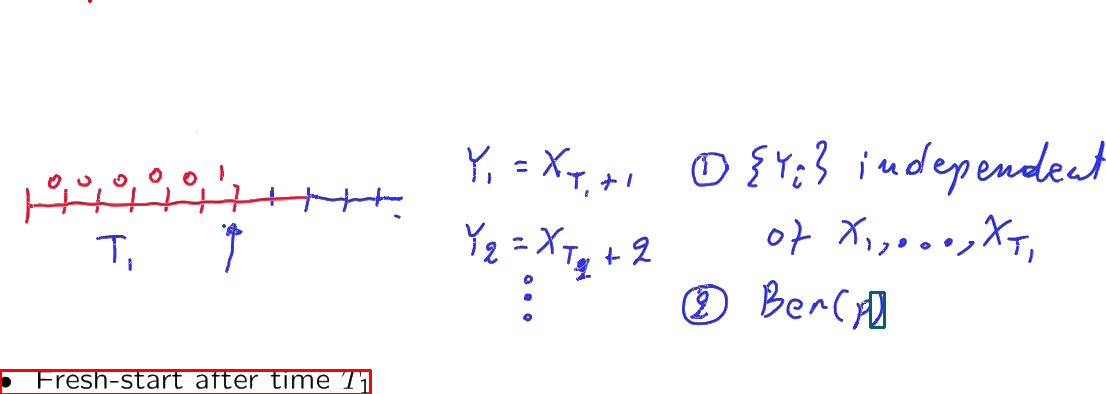 0 0 0 0 0 1
T₁
Y₁ = X_{T₁+1}
Y₂ = X_{T₁+2}
⋮
① {Yᵢ} independent
of X₁, ..., X_{T₁}
② Ber(p)
• Fresh-start after time T₁